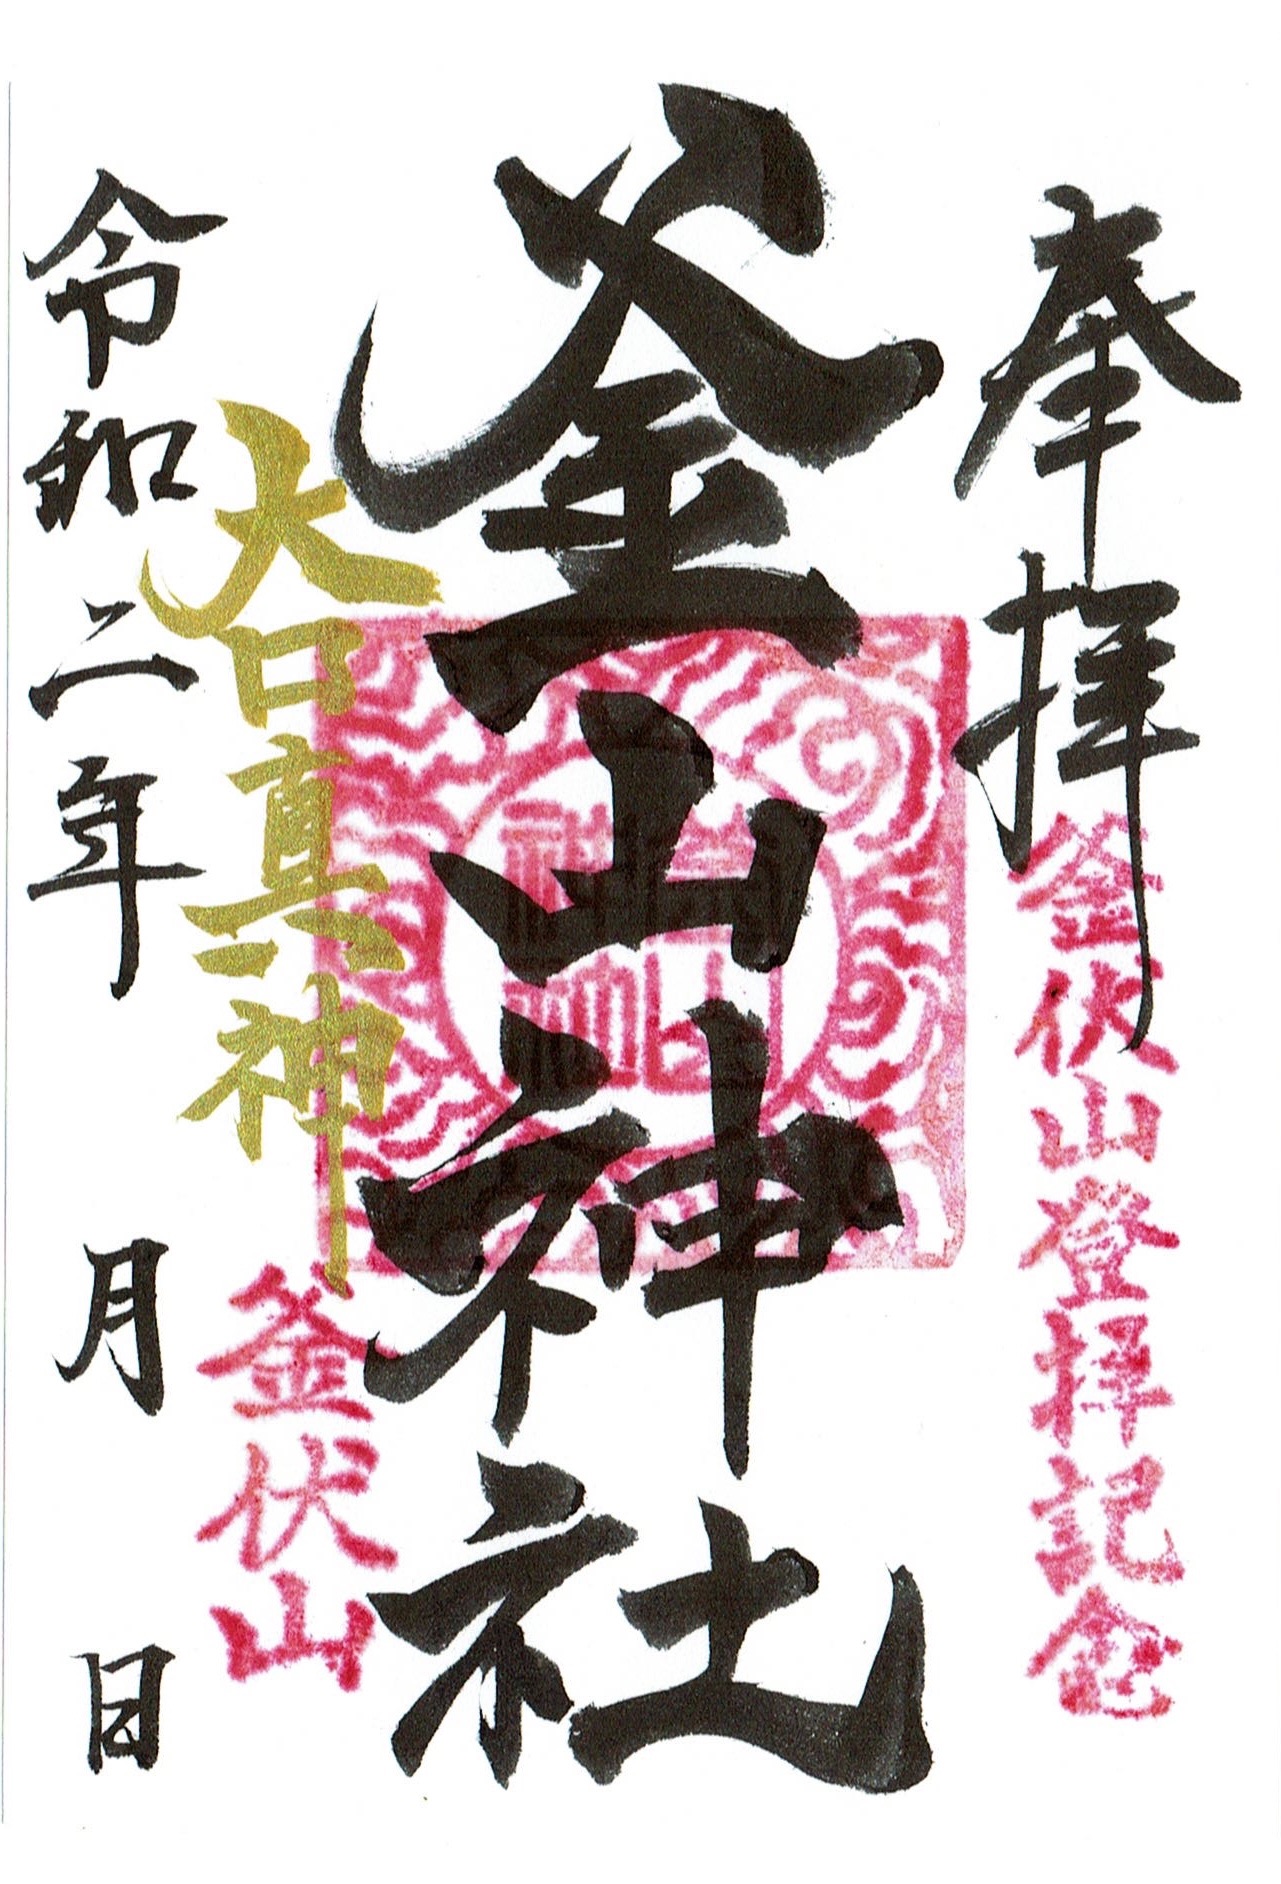 奉拝
釜伏山登拝記念
釜山神社
大口真神
釜伏山
令和二年　月　日